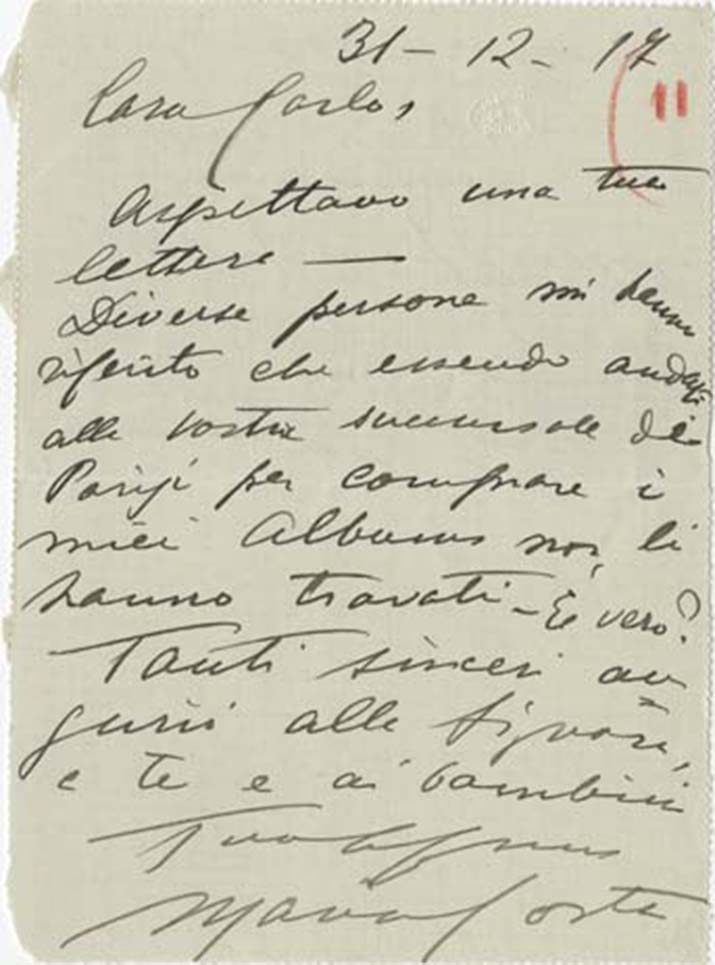 31 - 12 - 17
11
Caro Carlos,
Aspettavo una tua
lettera —
Diverse persone mi hanno
riferito che essendo andati
alla vostra succursale di
Parigi per comprare i
miei Albums non li
hanno trovati - È vero?
Tanti sinceri au
guri alla Signora,
a te e ai bambini
Tuo
Mario Costa